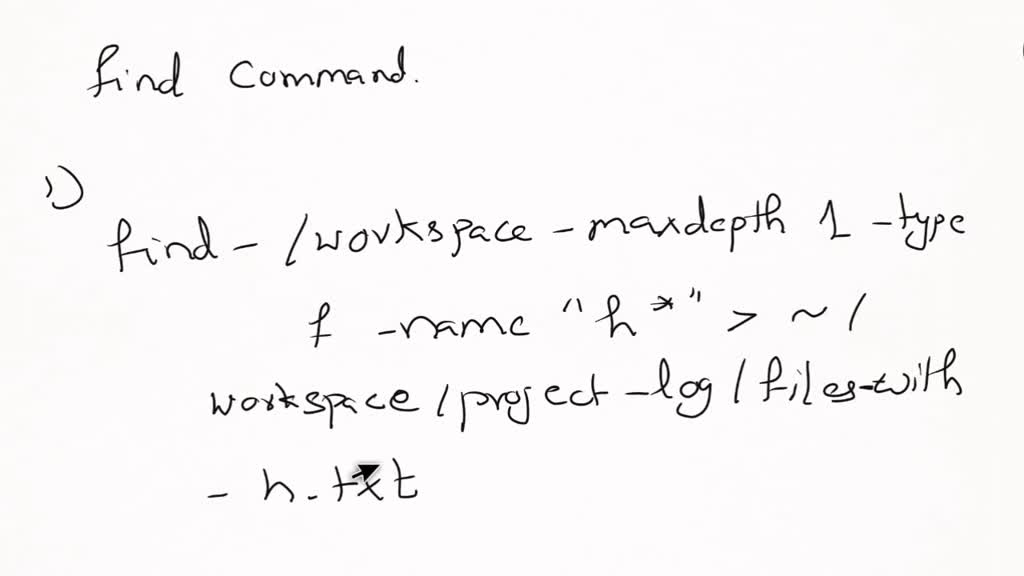 find Command.
1)
find - /workspace -maxdepth 1 -type
f -name "h*" > ~/
workspace/project-log/files-with
- h.txt